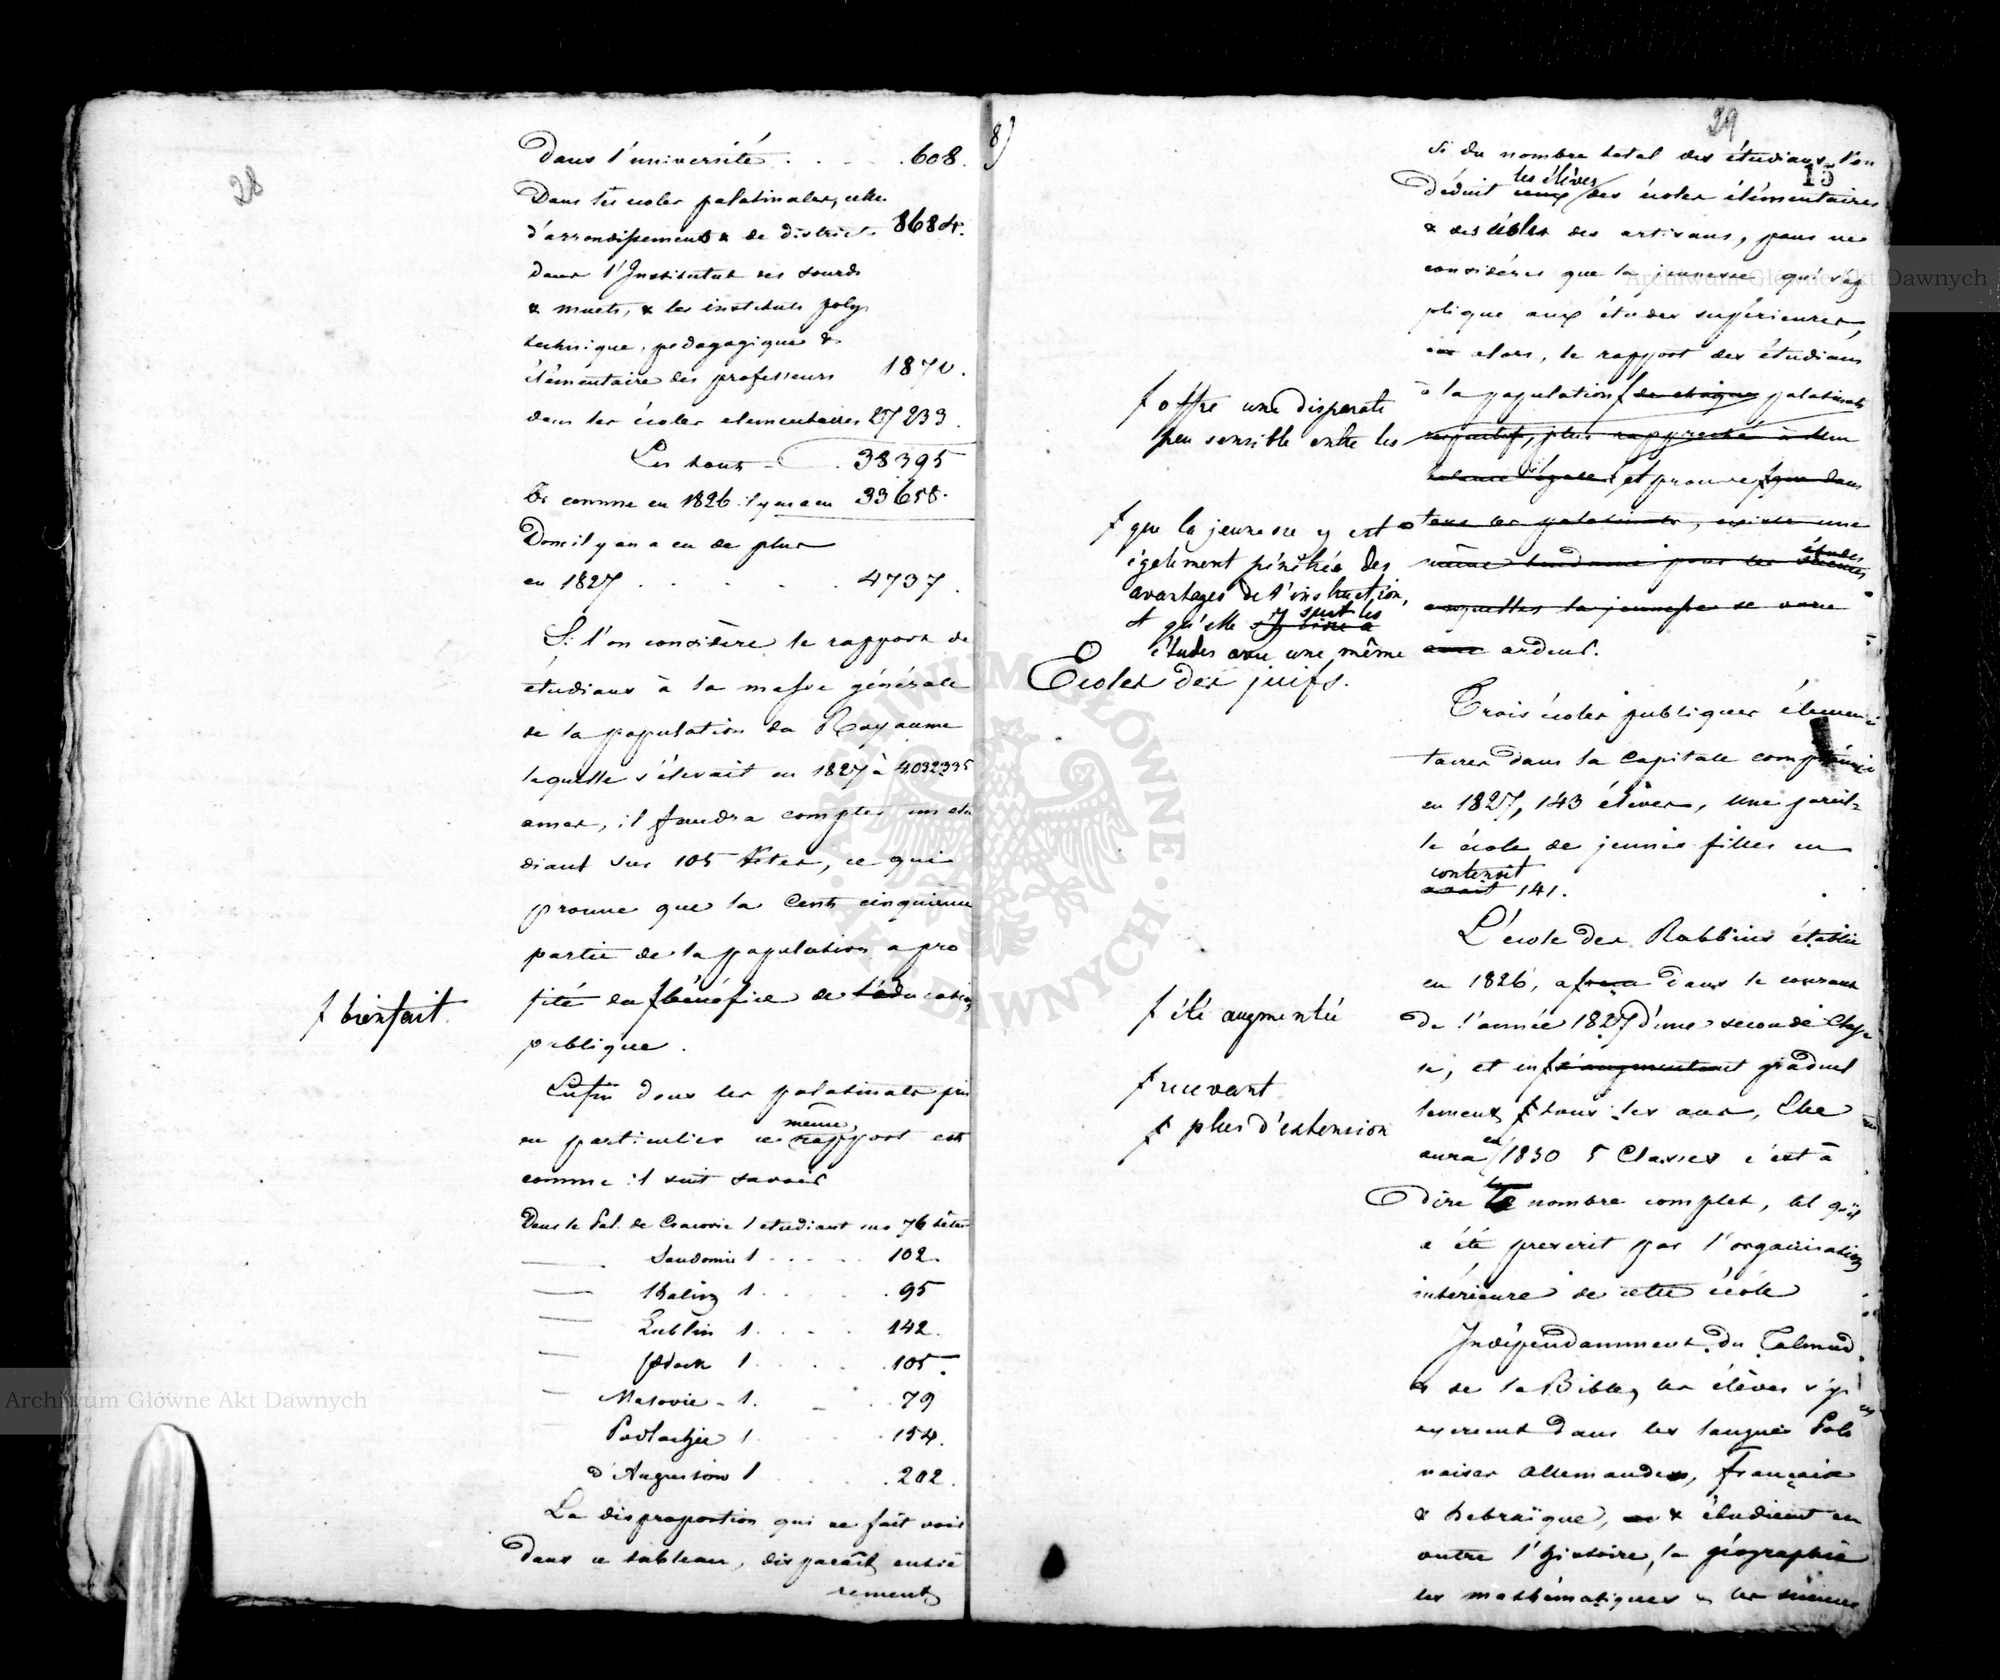 28
Dans l'université . . . . 608.
Dans les ecoles palatinales, celles
d'arrondissements & de districts 8684.
dans l'Institut des sourds
& muets, & les instituts poly
technique, pedagogique &
élémentaire des professeurs 1870.
dans les écoles elementaires 27233.
Les tous . 38395
Or comme en 1826 il y en a eu 33658.
Donc il y en a eu de plus
en 1827 . . . . . 4737.
Si l'on considère le rapport de
étudians à la masse générale
de la population du Royaume
laquelle s'élevait en 1827 à 4032335
ames, il faudra compter un etu
diant sur 105 têtes, ce qui
prouve que la Cent cinquième
partie de la population a pro
fité du f bénéfice de l'éducation
f bienfait.
publique.
Enfin dans les palatinats pris
même
en particulier ce rapport est
comme il suit savoir
Dans le Pal. de Cracovie 1 etudiant sur 76 têtes
Sandomir 1 . . . . 102.
Kalisz 1 . . . . 95
Lublin 1 . . . . 142.
Plock 1 . . . . 105.
Masovie - 1. . . . 79
Podlachie 1 . . . . 154.
d'Augustow 1 . . . . 202.
La disproportion qui se fait voir
dans ce tableau, disparaît entiè
rement
8)
29
15
Si du nombre total des étudians l'on
les élèves
déduit ceux des écoles élémentaires
& des écoles des artisans, pour ne
considérer que la jeunesse qui s'ap
plique aux études supérieures,
alors, le rapport des étudians
à la population f de chaque palatinats
f offre une disparate
peu sensible entre les
respectif, plus rapproché à
égale et prouve f que dans
f que la jeunesse y est
également pénétrée des
avantages de l'instruction,
y suit les
et qu'elle
études avec une même
tous les palatinats, existe une
études
même tendance pour les sciences
auxquelles la jeunesse se voue
avec ardeur.
Ecoles des juifs.
Trois écoles publiques élémen
taires dans la Capitale
en 1827, 143 élèves, une pareil-
le école de jeunes filles en
contenait
avait 141.
L'école des Rabbins établie
en 1826, a f dans le courant
f été augmentée
de l'année 1827 d'une seconde Clas
se, et en f s'augmentant graduel
f recevant
lement f tous les ans, Elle
f plus d'extension
en
aura 1830 5 Classes c'est à
dire le nombre complet, tel qu'il
a été prescrit par l'organisation
intérieure de cette école
Indépendamment du Talmud
& de la Bible, les élèves s'y
exercent dans les langues Polo
naises allemandes, française
& hebraïque, & étudient en
outre l'histoire, la géographie
les mathématiques & les sciences
Archiwum Główne Akt Dawnych
Archiwum Główne Akt Dawnych
ARCHIWUM GŁÓWNE AKT DAWNYCH